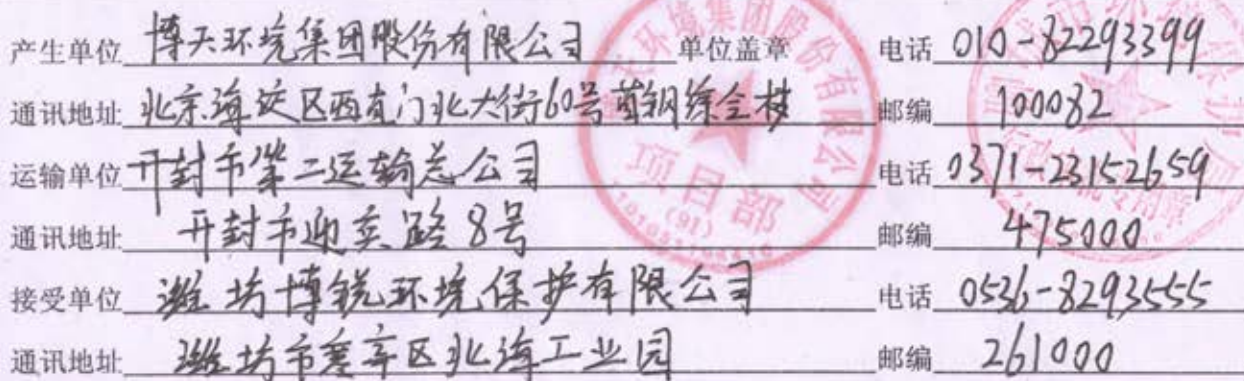 产生单位 博天环境集团股份有限公司 单位盖章 电话 010-82293399
通讯地址 北京海淀区西直门北大街60号首钢综合楼 邮编 100082
运输单位 开封市第二运输总公司 电话 0371-23152659
通讯地址 开封市迎宾路8号 邮编 475000
接受单位 潍坊博锐环境保护有限公司 电话 0536-8293555
通讯地址 潍坊市寒亭区北海工业园 邮编 261000
环境集团股份有限公司
项目部
(91)